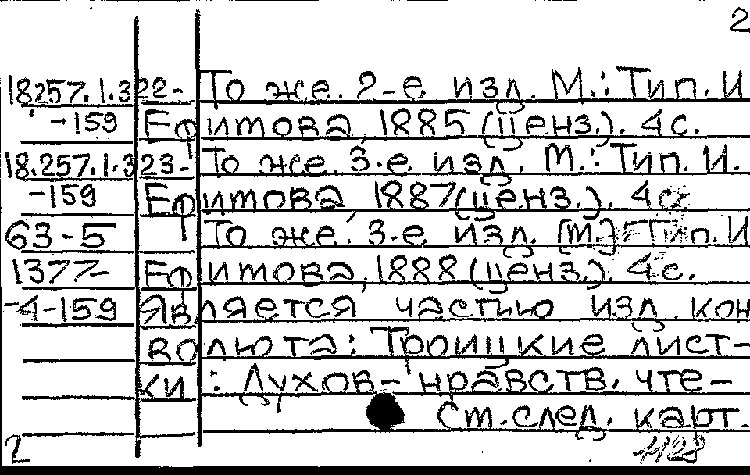 2
18257.1.322- То же. 2-е изд. М.: Тип. И.
-159 Ефимова, 1885 (ценз.). 4с.
18.257.1.323- То же. 3-е изд. М.: Тип. И.
-159 Ефимова, 1887 (ценз.). 4с.
63-5 То же. 3-е изд. [М.]: Тип. И.
1377- Ефимова, 1888 (ценз.). 4с.
-4-159 Является частью изд. кон
волюта: Троицкие лист-
ки: Духов-нравств. чте-
См. след. карт.
2